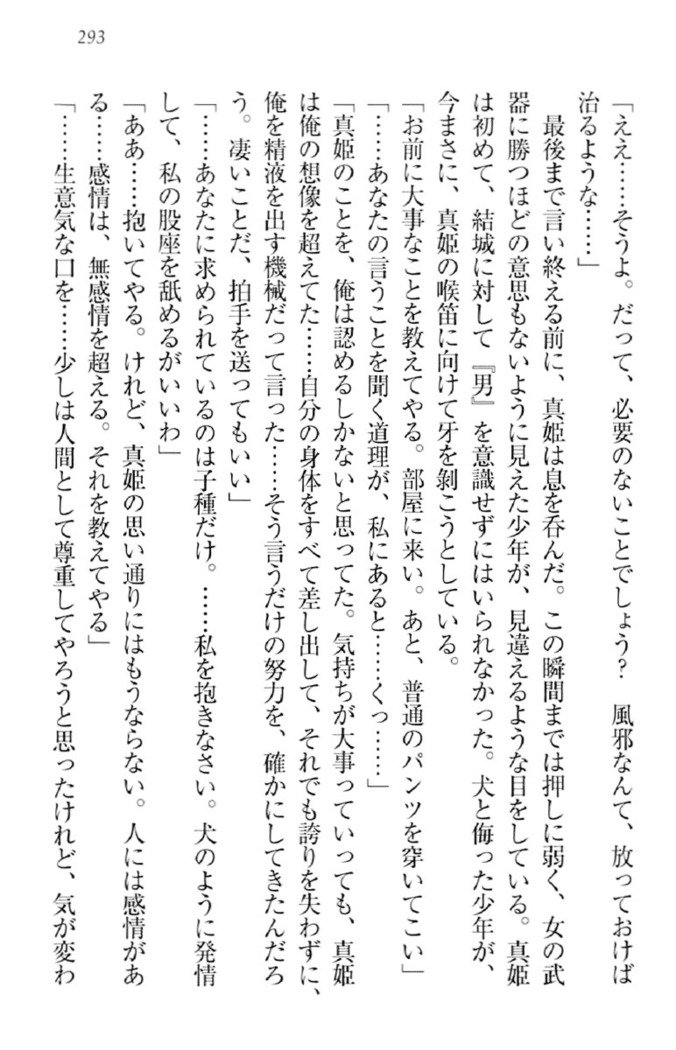 293
「ええ……そうよ。だって、必要のないことでしょう？　風邪なんて、放っておけば
治るような……」
　最後まで言い終える前に、真姫は息を呑んだ。この瞬間までは押しに弱く、女の武
器に勝つほどの意思もないように見えた少年が、見違えるような目をしている。真姫
は初めて、結城に対して『男』を意識せずにはいられなかった。犬と侮った少年が、
今まさに、真姫の喉笛に向けて牙を剝こうとしている。
「お前に大事なことを教えてやる。部屋に来い。あと、普通のパンツを穿いてこい」
「……あなたの言うことを聞く道理が、私にあると……くっ……」
「真姫のことを、俺は認めるしかないと思ってた。気持ちが大事っていっても、真姫
は俺の想像を超えてた……自分の身体をすべて差し出して、それでも誇りを失わずに、
俺を精液を出す機械だって言った……そう言うだけの努力を、確かにしてきたんだろ
う。凄いことだ、拍手を送ってもいい」
「……あなたに求められているのは子種だけ。……私を抱きなさい。犬のように発情
して、私の股座を舐めるがいいわ」
「ああ……抱いてやる。けれど、真姫の思い通りにはもうならない。人には感情があ
る……感情は、無感情を超える。それを教えてやる」
「……生意気な口を……少しは人間として尊重してやろうと思ったけれど、気が変わ